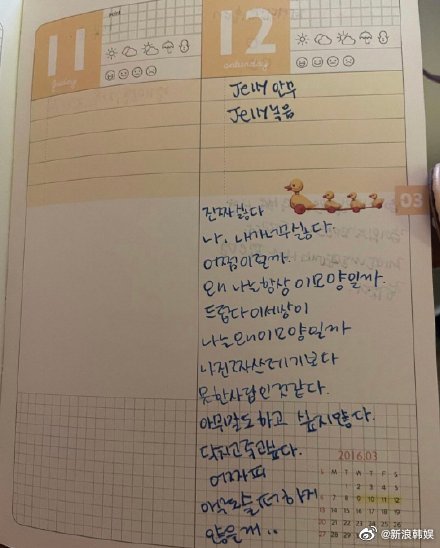 11
friday
12
saturday
Jelly 안무
Jelly 녹음
03
진짜 싫다
나. 내가 너무 싫다
어쩜 이모양
왜 나는 항상 이모양일까
드럽다 이세상이
나는 왜 이모양일까
나진짜 쓰레기보다
못한사람인것같다.
아무말도 하고 싶지않다.
닥치고 죽고싶다.
어차피
아무도 슬퍼하지
않을게..
2016.03
S M T W T F S
1 2 3 4 5
6 7 8 9 10 11 12
13 14 15 16 17 18 19
20 21 22 23 24 25 26
27 28 29 30 31
@新浪韩娱